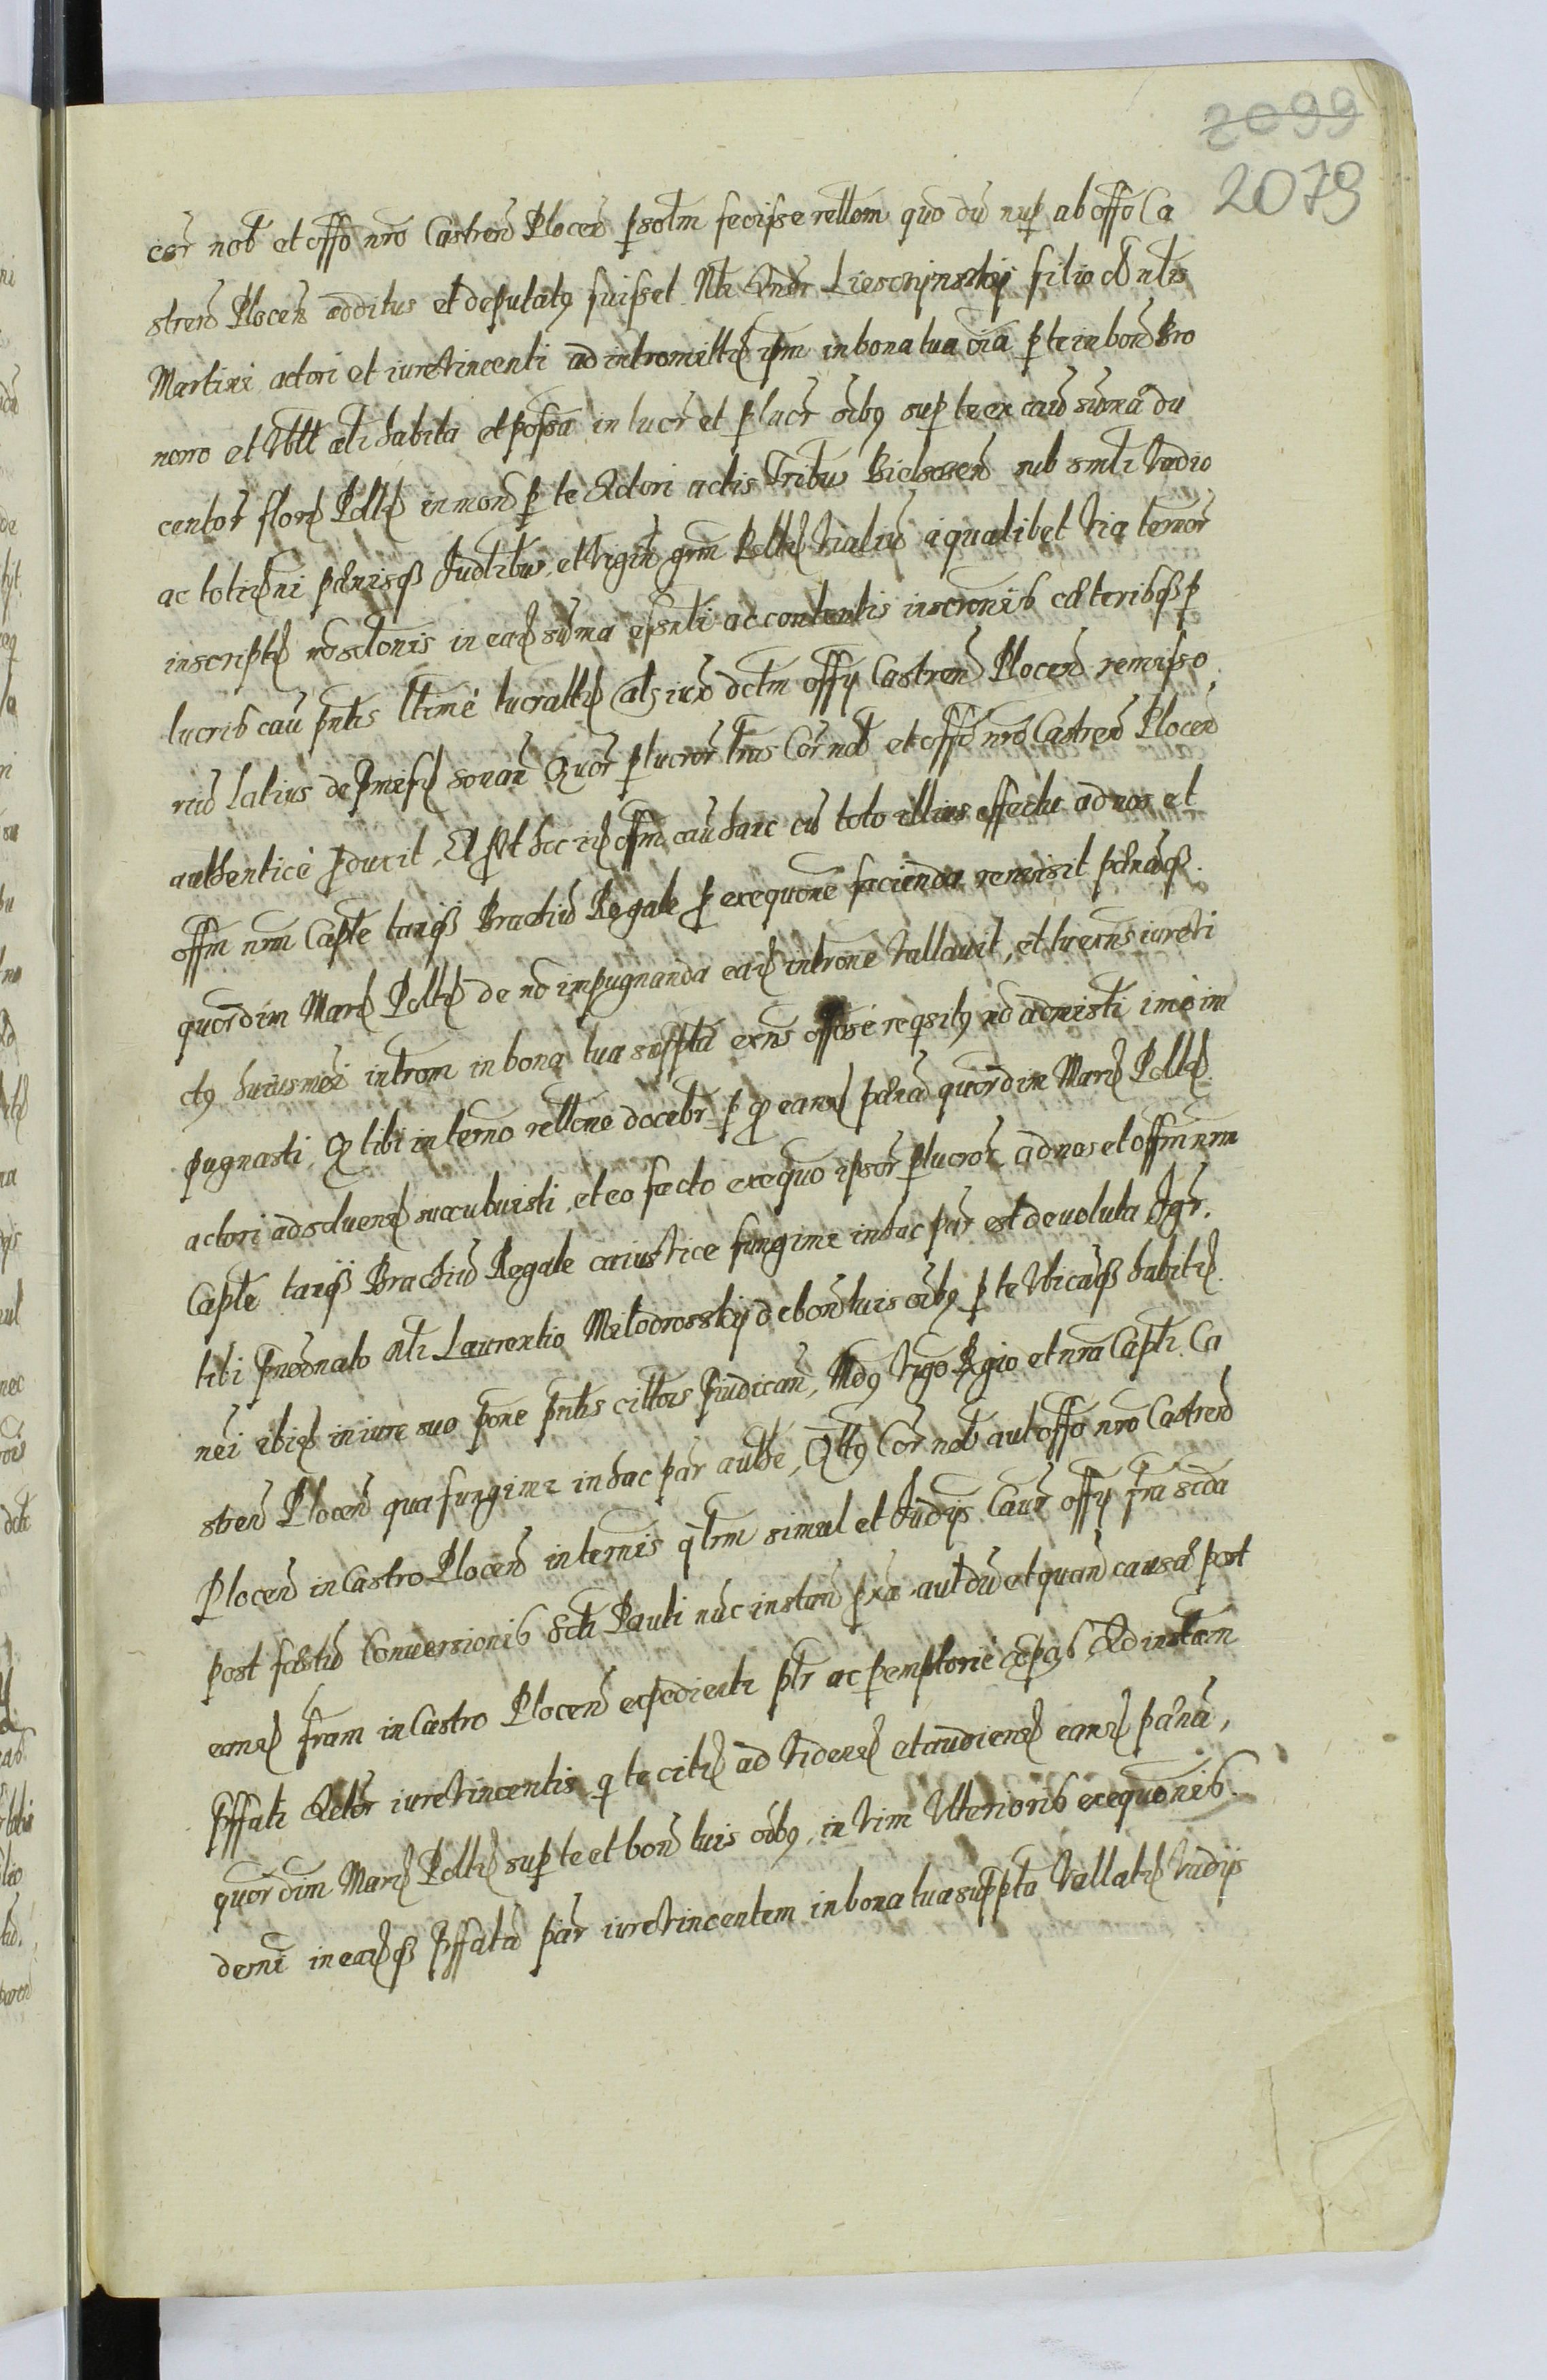 2099
2079
cor nob et offo nro Castren Plocen psotm fecisse rellom quo du nup ab offo Ca
stren Plocen additus et deputatq fuisset Nli Andr Liesczijnskij filio olim
Martini actori et iurevincenti ad intromitted ipm in bona tua oia p te in bon Bro
noro et vbtt ali habita et possa in lucr et p lucr oibq sup te ex cau suma du
centor flore Poltd in mon p te Actori actis Tribu Bielscen sub smli vadio
ac totidni pdnisq Judlibu et vigin grm Poltd vialiu a qualibet via temor
inscriptd nosdonis in ead suma essnli ac contentis inscronib cateribsq p
lucrib cau pntis ltime lucrattd als iuxo dctm offy Castren Plocen remisso
riu latius de pmissd sonan Quor plucror lras Cor nob et offo nro Castren Plocen
authentice pducit, Et put hec id offm cau hanc cu toto illius effectu ad nos et
offm nrm Capte tanq Brachiu Regale p exequone facienda remisit pdnaq
quordim Mard Poltd de no impugnanda ead introne vallauit, et lu exns iureti
ctq huiusmoi introm in bona tua suppta exns offose reqsitq no admisti imo im
pugnasti, Q tibi in termo rellone docebr p q eand pdna quordim Mard Poltd
actori adsoluend succubuisti, et eo facto exequo ipsor plucror ad nos et offm nrm
Capte tanq Brachiu Regale cuius vice fungimr in hac par est deuoluta Igr.
tibi pnodnato Nli Laurentio Milodrosskij de bon tuis oibq p te vbicuq habitd
nei ibid in iure suo pone pntis cittois Piudican, Mdq vigo Rgio et nra Capli Ca
stren Plocen qua fungimr in hac par authe, Qttq Cor nob aut offo nro Castren
Plocen in Castro Plocen in termis qtrm simul et Judys Caur offy fria scda
post festu Conuersionis Scti Pauli nuc instan pxa aut du et quan causa post
eand fram in Castro Plocen expedienti ptr ac pemptorie Ad instam
pffati Actor iurevincentis q te citd ad vidend et audiend eand pdna,
quordim Mard Poltd sup te et bon tuis oibq, in vim vlterioris exequonis
demi in eadq pffata par iurevincentem in bona tua suppta vallatd vadys